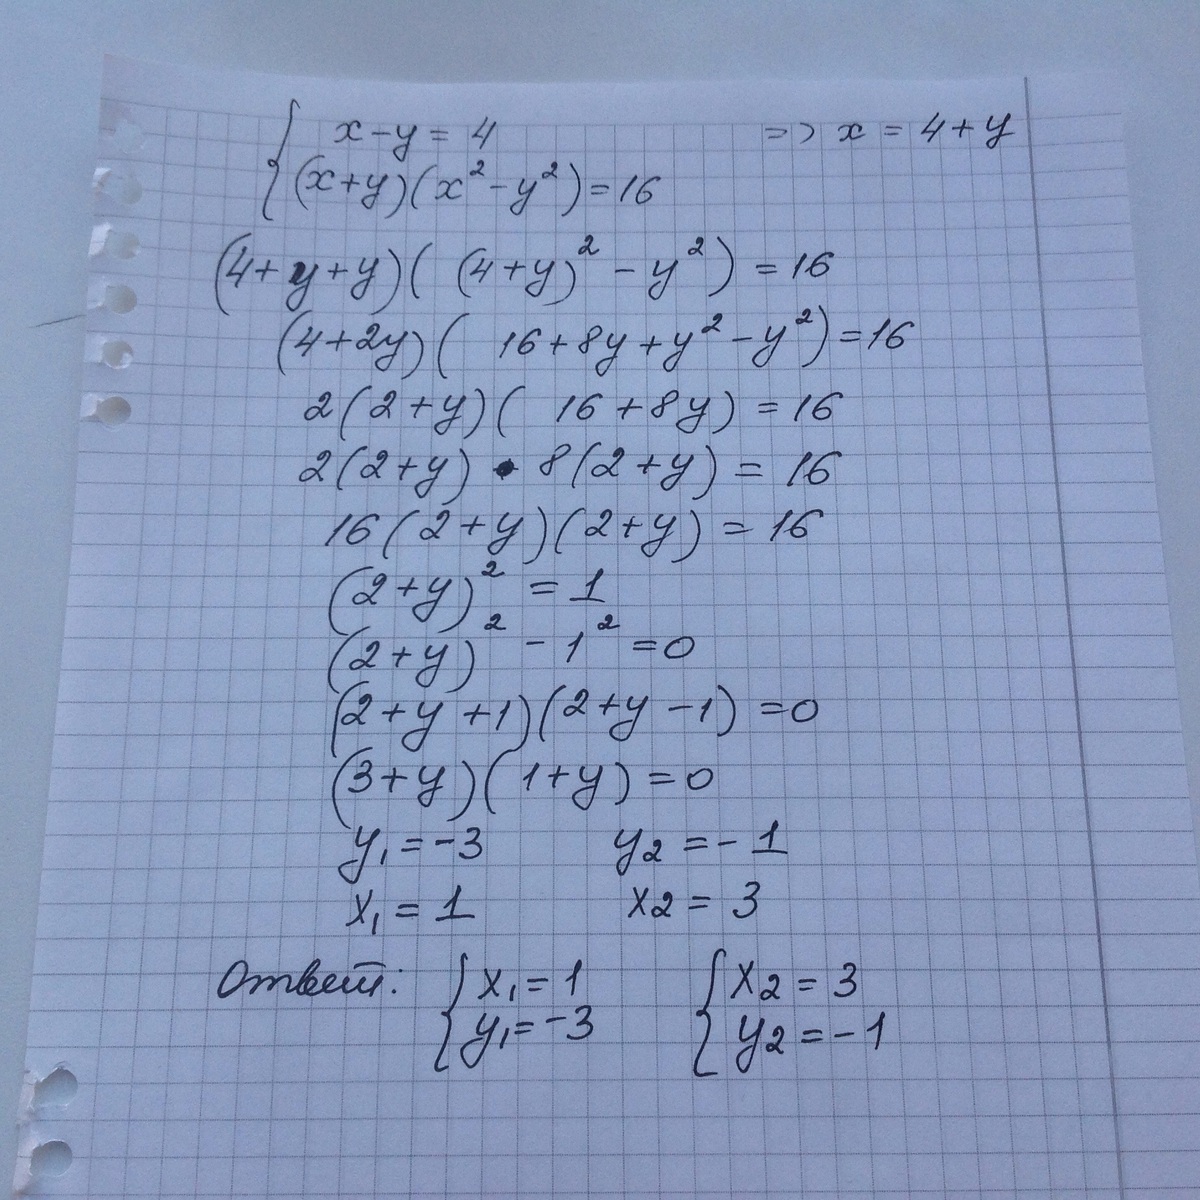 x-y = 4 => x = 4+y
(x+y)(x²-y²)=16
(4+y+y)( (4+y)²-y²) =16
(4+2y)( 16+8y+y²-y²)=16
2(2+y)( 16+8y) =16
2(2+y) • 8(2+y) = 16
16(2+y)(2+y) = 16
(2+y)² = 1
(2+y)² - 1² =0
(2+y+1)(2+y-1) =0
(3+y)(1+y)=0
y₁=-3 y₂=-1
x₁=1 x₂=3
Ответ: { x₁=1 { x₂=3
y₁=-3 y₂=-1